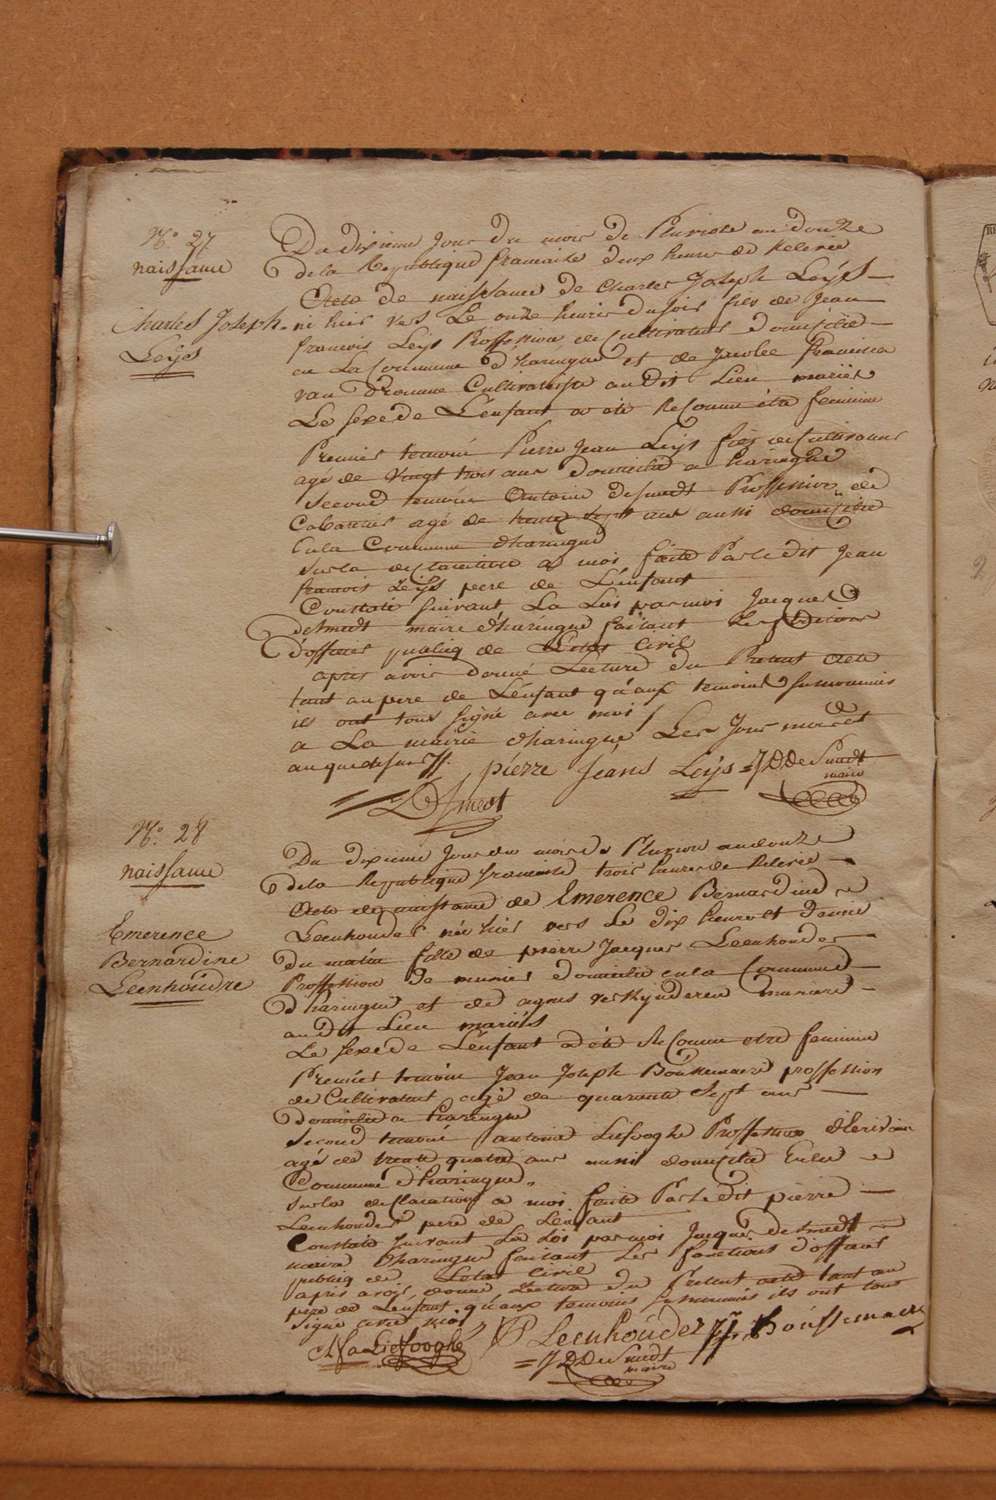 N.° 27
naissance
Charles Joseph
Leÿs
Du dixieme Jour du mois de Pluviose an douze
de la Republique francaise deux heures de Relevée
Acte de naissance de Charles Joseph Leÿs
né hier vers Le onze heures du soir fils de Jean
francois Leÿs Profession de Cultivateur domicilié
en La Commune d'haringue et de Jacobe francisca
van Dromme Cultivatrice au Dit Lieu mariës
Le sexe de L'enfant a été Reconnu être feminin
Premier temoin Pierre Jean Leÿs fils de Cultivateur
agé de Vingt trois ans domicilié a haringhe
Second temoin Antoine desmedt Profession de
Cabaretier agé de trente Sept ans aussi domicilié
En la Commune d'haringue
Sur la declaration a moi faite Par le dit Jean
francois Leÿs pere de L'enfant
Constaté suivant La Loi par moi Jacques
desmedt maire d'haringue faisant les fonctions
d'officier publicq de L'etat Civil
après avoir donné Lecture du Present acte
tant au pere de L'enfant qu'aux temoins susnommés
ils ont tous signé avec moi
a La mairie d'haringue Les Jour mois et
an que dessus
pierre Jeans Leÿs J D. De Smedt
maire
D Smedt
N.° 28
naissance
Emerence
Bernardine
Leenhoudre
Du dixieme Jour du mois de Pluviose an douze
de la Republique francaise trois heures de Relevée
Acte de naissance de Emerence Bernardine
Leenhouder née hier vers Le dix heures et Demie
du matin fille de pierre Jacques Leenhouder
Profession de meunier domicilié en la Commune
d'haringue et de agnes verhynderen
au dit Lieu mariés
Le sexe de L'enfant a été Reconnu etre feminin
Premier temoin Jean Joseph Boussemaere profession
de Cultivateur agé de quarante Sept ans
domicilié a haringue
Second temoin antoine Liefooghe Profession d'Ecrivain
agé de trente quatre ans aussi domicilié En la
Commune d'haringue
Sur la declaration a moi faite Par le dit pierre
Leenhouder pere de L'enfant
Constaté suivant La Loi par moi Jacque Desmedt
maire d'haringue faisant Les fonctions d'officier
publicq de L'etat Civil
après avoir donné Lecture du Present acte tant au
pere de L'enfant qu'aux temoins susnommés ils ont tous
signé avec moi
A Liefooghe P Leenhoúder Boússemaere
J D De Smedt
maire